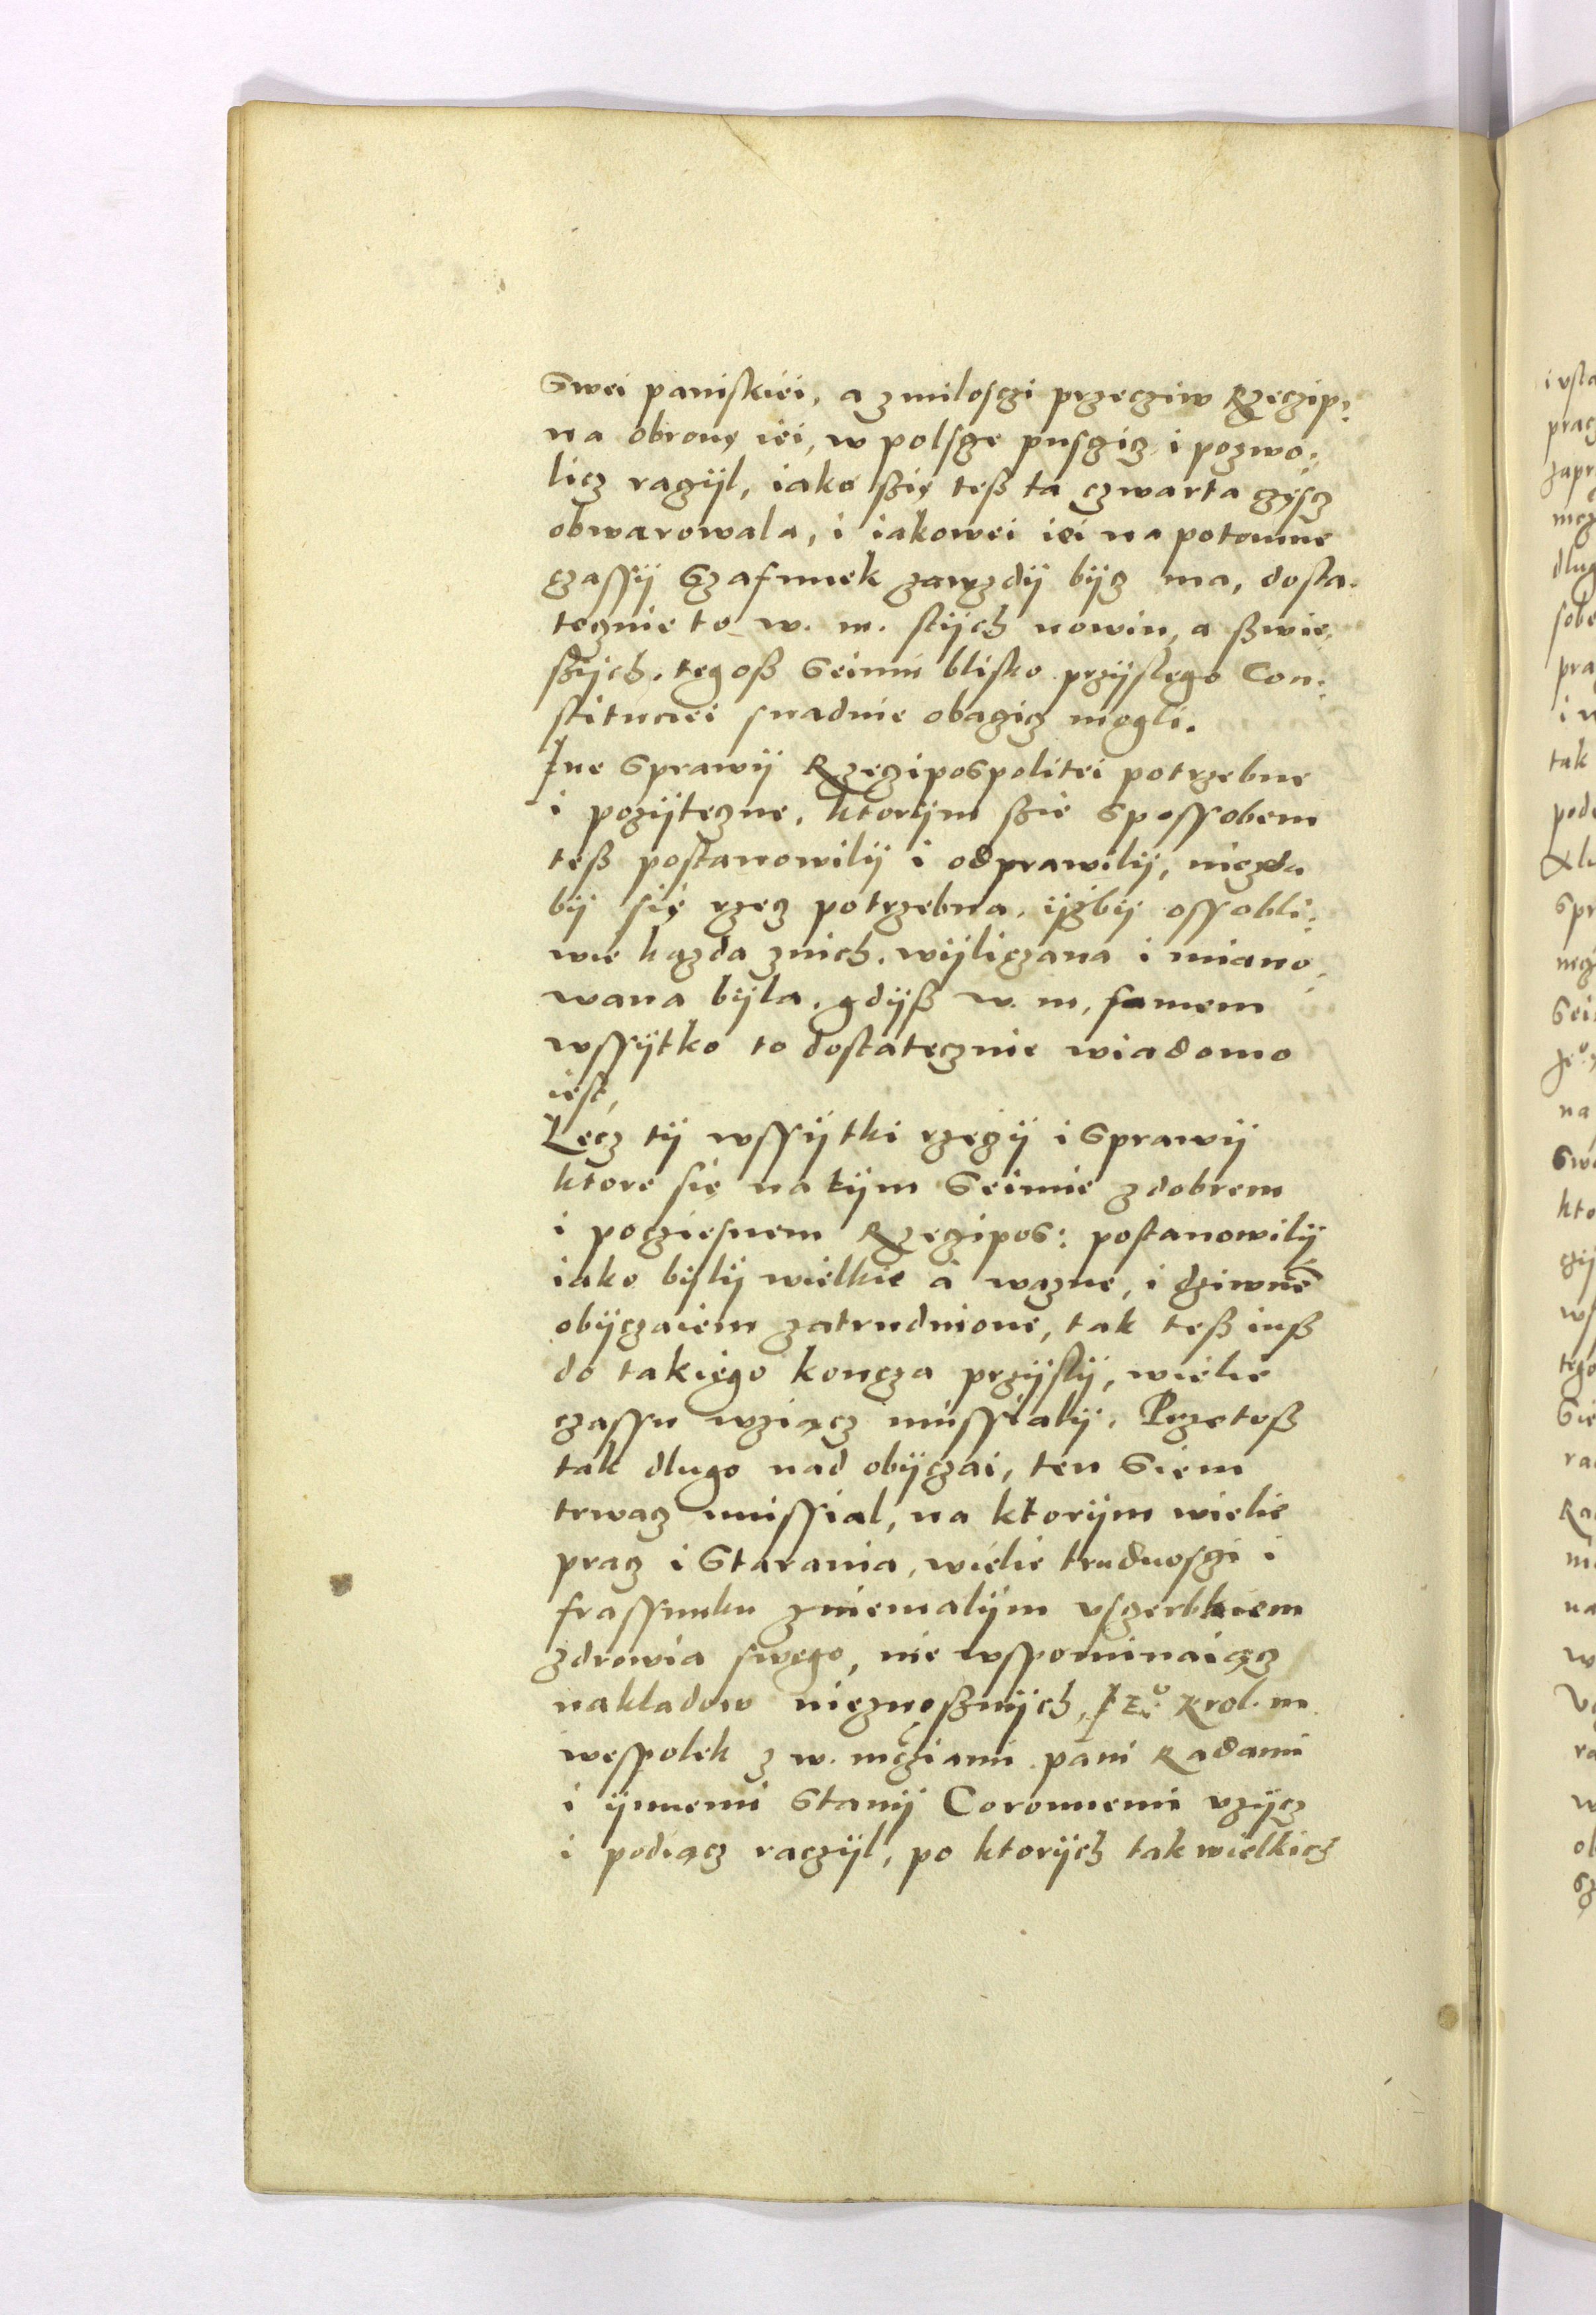 Swei paniskiei, a z milosczi przecziw Rzeczip:
na obronę iei, w polscze pusczicz i pozwo:
licz raczÿl, iako szię tesz ta czwarta częscz
obwarowala, i iakowei iei na potomne
czassÿ Szafunek zawzdÿ bÿcz ma, dosta.
tecznie to w. m. stÿch nowin, a szwie,
szÿch, tegosz Seimu blisko przÿslego Con:
stituciei snadnie obaczicz mogli.
Ine Sprawÿ Rzeczipospolitei potrzebne
i pozÿteczne, ktorÿm szie Spossobem
tesz postanowilÿ i odprawilÿ, niezda
bÿ się rzecz potrzebna, ÿzbÿ ossobli:
wie kazda znich, wÿliczana i miano:
wana bÿla, gdÿsz w. m, samem
wssÿtko to dostatecznie wiadomo
iest,
Lecz tÿ wssÿtki rzeczÿ i Sprawÿ
ktore się na tÿm Seimie z dobrem
i pocziesnem Rzeczipos: postanowilÿ
iako bÿlÿ wielkie a wazne, i dziwnē
obÿczaiem zatrudnione, tak tesz insz
do takiego koncza przÿslÿ, wiele
czassu wziącz mussialÿ, Przetosz
tak dlugo nad obÿczai, ten Siem
trwacz mussial, na ktorÿm wielie
pracz i Starania, wielie trudnosczi i
frassunku z niemalÿm vsczerbkiem
zdrowia swego, nie wspominaiącz
nakladow nieznosznÿch, Je͛º Krol. m
wespolek z w. mcziami pani Radami
i ÿnnemi Stanÿ Coronnemi vzÿcz
i podiącz raczÿl, po ktorÿch tak wielkich